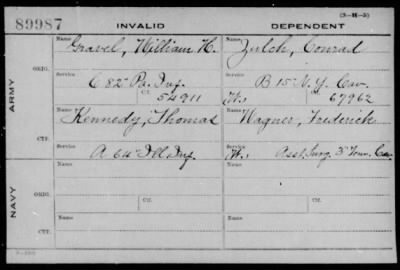 89987 INVALID DEPENDENT (3-H-5)
Name Gravel, William H. Name Zulch, Conrad
ARMY
ORIG.
Service C 82 Pa. Inf. Service B 15 N.Y. Cav.
Ctf. 54911 (W.) Ctf. 67962
Name Kennedy, Thomas Name Wagner, Frederick
CTF.
Service A 64 Ill Inf. Service (W.) Asst. Surg. 3" Tenn. Cav.
NAVY
Name Name
ORIG.
Service Ctf. Service Ctf.
Name Name
CTF.
Service Service